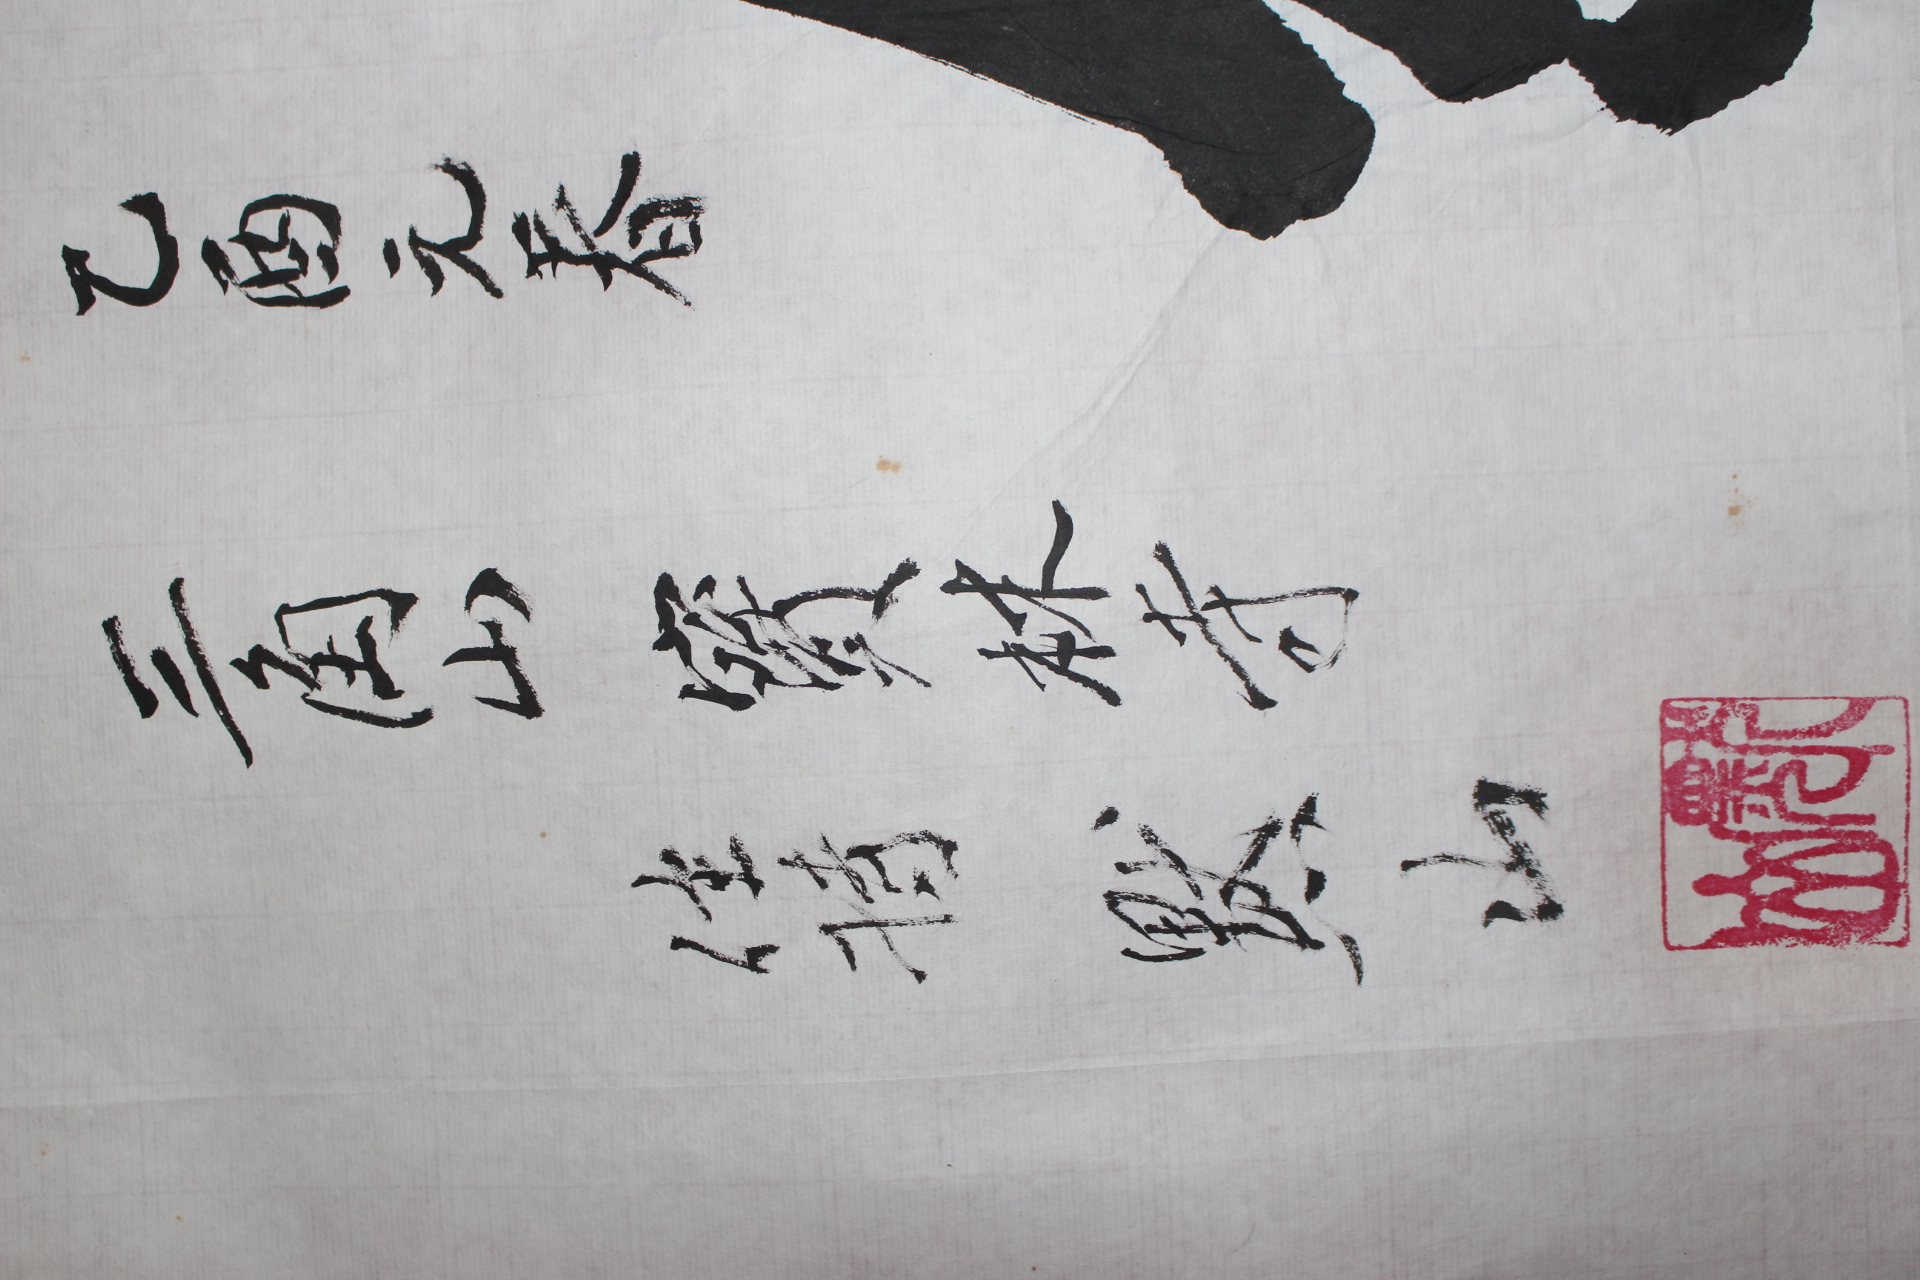 乙酉元春
三角山 寶林寺
住持 默山
默山